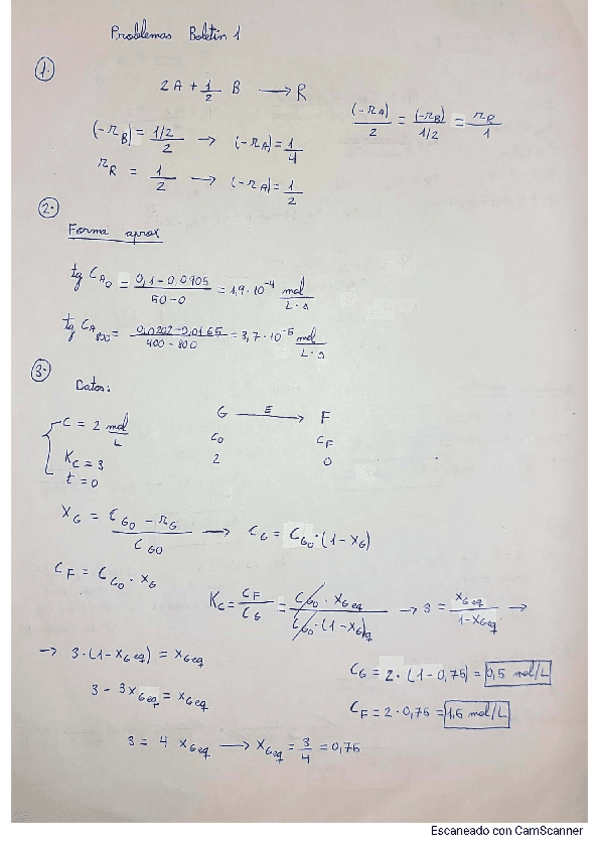 Problemas Boletin 1
1.
2A + 1/2 B → R
(-rA)/2 = (-rB)/(1/2) = rR/1
(-rB) = (1/2)/2 → (-rA) = 1/4
rR = 1/2 → (-rA) = 1/2
2.
Forma aprox
tg CA0 = (0,1-0,0905)/(50-0) = 1,9·10⁻⁴ mol/(L·s)
tg CA800 = (0,0202-0,0165)/(400-800) = 3,7·10⁻⁵ mol/(L·s)
3.
Datos:
C = 2 mol/L
KC = 3
t = 0
G —E→ F
C0 CF
2 0
XG = (CG0 - rG)/CG0 → CG = CG0·(1-XG)
CF = CG0 · XG
KC = CF/CG = (CG0 · XGeq)/(CG0·(1-XG)q) → 3 = XGeq/(1-XGeq) →
→ 3·(1-XGeq) = XGeq
3 - 3XGeq = XGeq
3 = 4 XGeq → XGeq = 3/4 = 0,75
CG = 2·(1-0,75) = 0,5 mol/L
CF = 2·0,75 = 1,5 mol/L
Escaneado con CamScanner